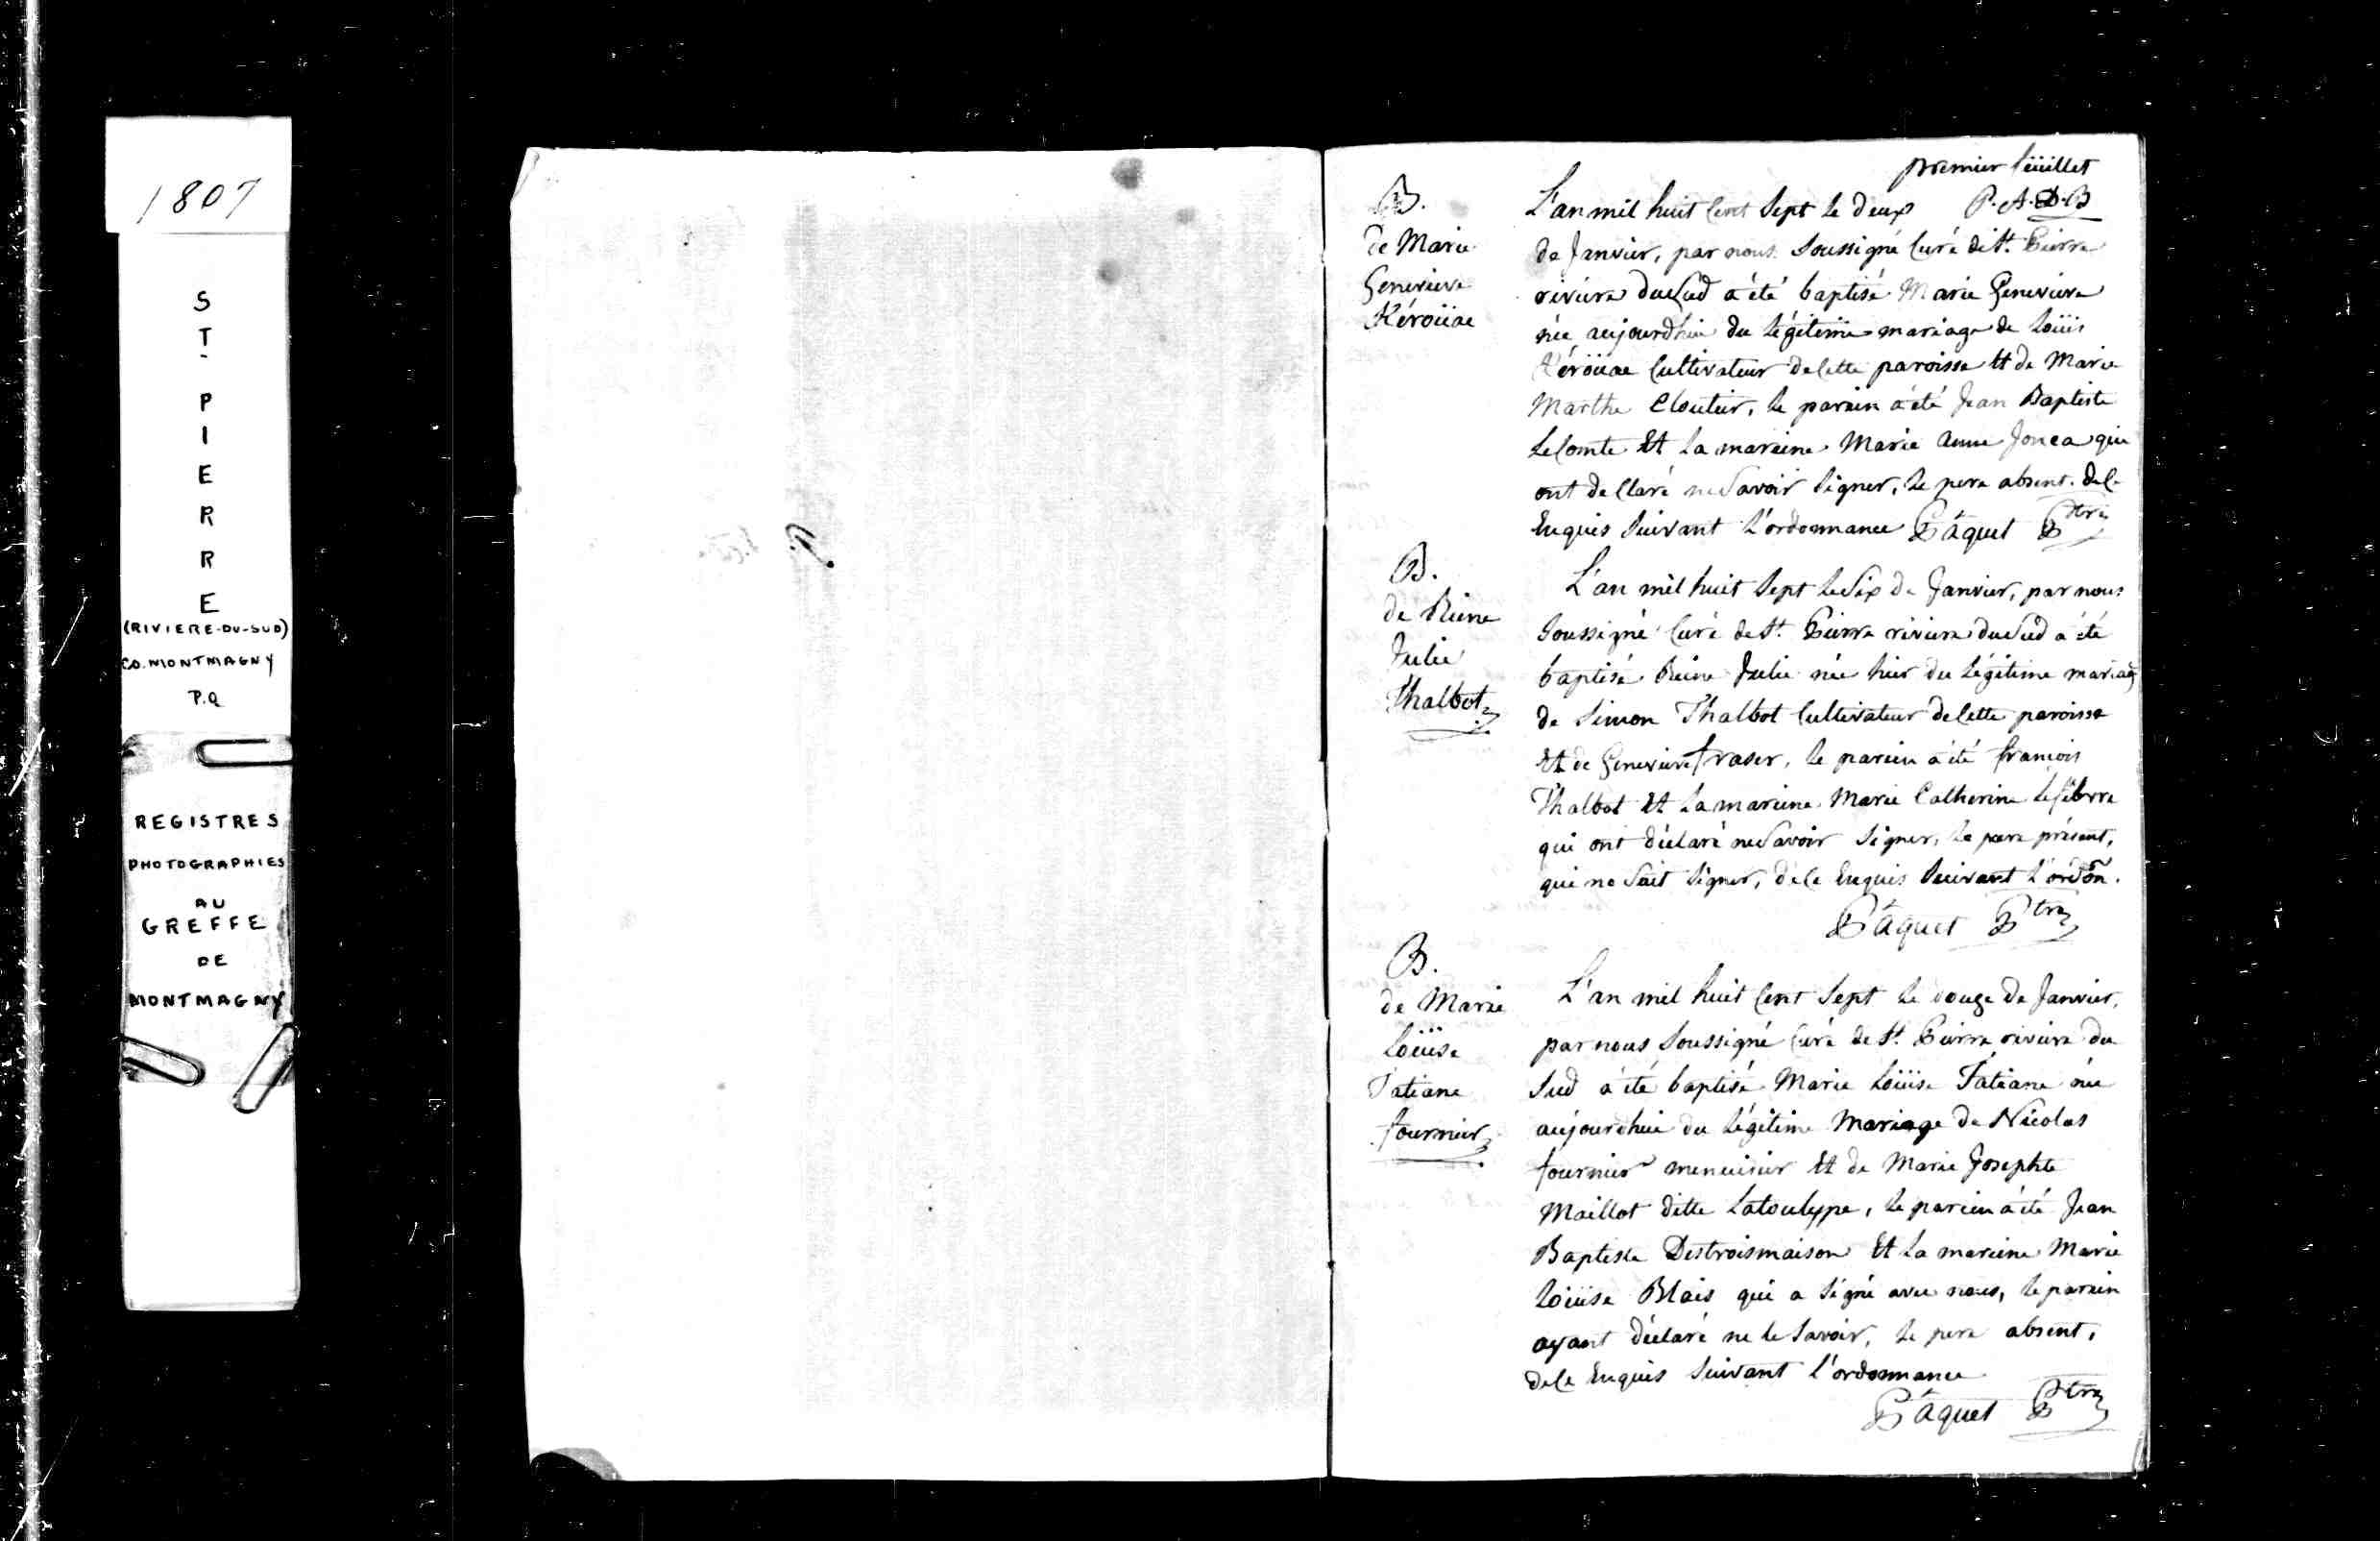 1807
ST. PIERRE
(RIVIERE-DU-SUD)
CO. MONTMAGNY
P.Q
REGISTRES
PHOTOGRAPHIES
AU
GREFFE
DE
MONTMAGNY
premier feüillet
P. A. D. B
B.
de Marie
Genevieve
Kéroüac
L'an mil huit Cent Sept le deux
de Janvier, par nous Soussigné Curé de St. Pierre
riviere du Sud a été baptisé Marie Genevieve
née aujourdhui du légitime mariage de Loüis
Kéroüac Cultivateur de Cette paroisse Et de Marie
Marthe Cloutier, le parein a été Jean Baptiste
LeComte Et la mareine Marie Anne Jonca qui
ont déClaré ne Savoir Signer, le pere absent. de Ce
Enquis Suivant l'ordonnance Pâquet Ptre
B.
de Reine
Julie
Thalbot
L'an mil huit Sept le Six de Janvier, par nous
Soussigné Curé de St. Pierre riviere du Sud a été
baptisé Reine Julie née hier du légitime mariag
de Simon Thalbot Cultivateur de Cette paroisse
Et de Genevieve fraser, le parein a été francois
Thalbot Et la mareine Marie Catherine Lefebvre
qui ont déclaré ne Savoir Signer, le pere présent,
qui ne Sait Signer, de Ce Enquis Suivant l'ordõn.
Pâquet Ptre
B.
de Marie
Loüise
Tatiane
fournier
L'an mil huit Cent Sept le douze de Janvier,
par nous Soussigné Curé de St. Pierre riviere du
Sud a été baptisé Marie Loüise Tatiane née
aujourdhui du légitime Mariage de Nicolas
fournier menuisier Et de Marie Josephte
Maillot ditte Latoulype, le parein a été Jean
Baptiste Destroismaison Et la mareine Marie
Loüise Blais qui a Signé avec nous, le parein
ayant déclaré ne le Savoir, le pere absent,
de Ce Enquis Suivant l'ordonnance
Pâquet Ptre